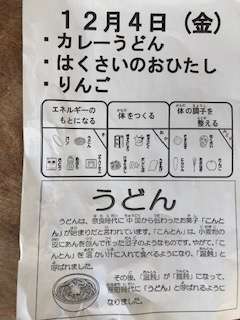 12月4日(金)
・カレーうどん
・はくさいのおひたし
・りんご
エネルギーの
もとになる
体をつくる
体の調子を
整える
うどん
うどんは、奈良時代に中国から伝わったお菓子「こんと
ん」が始まりだと言われています。「こんとん」は、小麦粉の
皮にあんを包んで作った団子のようなものです。やがて、「こん
とん」を温かい汁に入れて食べるようになり、「温飩」と
呼ばれました。
その後、「温飩」が「饂飩」になって、
室町時代に「うどん」と呼ばれるように
なりました。